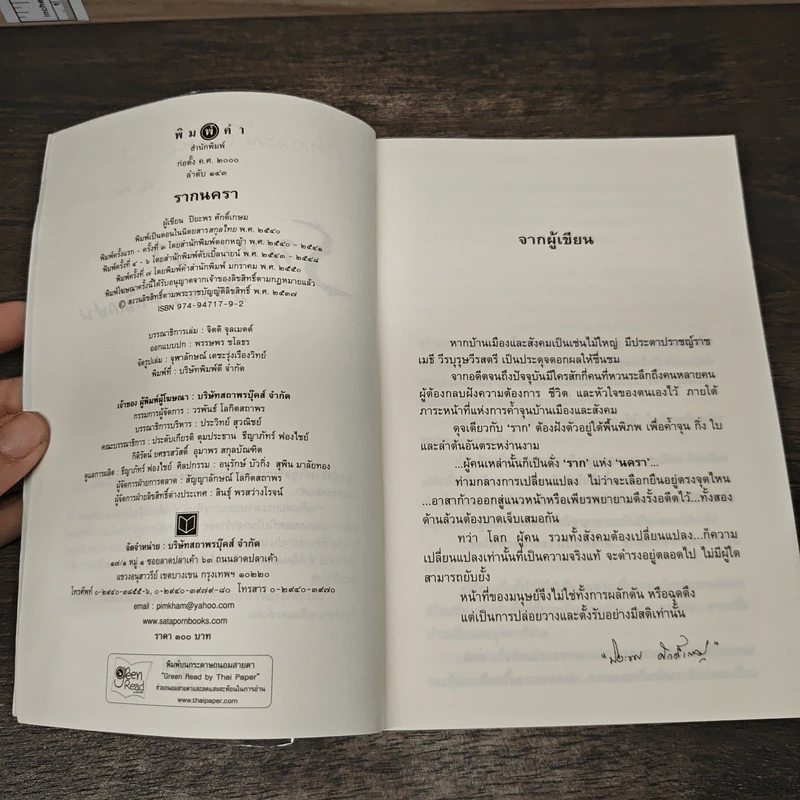 พิมพ์คำ
สำนักพิมพ์
ก่อตั้ง ค.ศ. ๒๐๐๐
ลำดับ ๑๔๓
รากนครา
ผู้เขียน ปิยะพร ศักดิ์เกษม
พิมพ์เป็นตอนในนิตยสารสกุลไทย พ.ศ. ๒๕๔๐
พิมพ์ครั้งแรก - ครั้งที่ ๓ โดยสำนักพิมพ์ดอกหญ้า พ.ศ. ๒๕๔๐ - ๒๕๔๑
พิมพ์ครั้งที่ ๔ - ๖ โดยสำนักพิมพ์ดับเบิ้ลนายน์ พ.ศ. ๒๕๔๓ - ๒๕๔๘
พิมพ์ครั้งที่ ๗ โดยพิมพ์คำสำนักพิมพ์ มกราคม พ.ศ. ๒๕๕๐
พิมพ์โฆษณาครั้งนี้ได้รับอนุญาตจากเจ้าของลิขสิทธิ์ตามกฎหมายแล้ว
© สงวนลิขสิทธิ์ตามพระราชบัญญัติลิขสิทธิ์ พ.ศ. ๒๕๓๗
ISBN 974-94717-9-2
บรรณาธิการเล่ม : จิตติ จุลเมตต์
ออกแบบปก : พรรษพร ชโลธร
จัดรูปเล่ม : จุฬาลักษณ์ เตชะรุ่งเรืองวิทย์
พิมพ์ที่ : บริษัทพิมพ์ดี จำกัด
เจ้าของ ผู้พิมพ์ผู้โฆษณา : บริษัทสถาพรบุ๊คส์ จำกัด
กรรมการผู้จัดการ : วรพันธ์ โลกิตสถาพร
บรรณาธิการบริหาร : ประวิทย์ สุวณิชย์
คณะบรรณาธิการ : ประดับเกียรติ ตุมประธาน ธีญาภัทร์ ฟองไชย์
กิติรัตน์ ยศธรสวัสดิ์ อุมาพร สกุลบัณฑิต
ดูแลการผลิต : ธีญาภัทร์ ฟองไชย์ ศิลปกรรม : อนุรักษ์ บัวกิ่ง สุพิน มาลัยทอง
ผู้จัดการฝ่ายการตลาด : สัญญาลักษณ์ โลกิตสถาพร
ผู้จัดการฝ่ายลิขสิทธิ์ต่างประเทศ : สินธุ์ พรสว่างโรจน์
จัดจำหน่าย : บริษัทสถาพรบุ๊คส์ จำกัด
๑๗/๑ หมู่ ๑ ซอยลาดปลาเค้า ๖๓ ถนนลาดปลาเค้า
แขวงอนุสาวรีย์ เขตบางเขน กรุงเทพฯ ๑๐๒๒๐
โทรศัพท์ ๐-๒๙๔๐-๓๘๕๕-๖, ๐-๒๙๔๐-๓๙๗๙-๘๐ โทรสาร ๐-๒๙๔๐-๓๙๗๐
email : pimkham@yahoo.com
www.satapornbooks.com
ราคา ๓๐๐ บาท
Green Read
พิมพ์บนกระดาษถนอมสายตา
"Green Read by Thai Paper"
ช่วยถนอมสายตาและลดแสงสะท้อนในการอ่าน
www.thaipaper.com
จากผู้เขียน
หากบ้านเมืองและสังคมเป็นเช่นไม้ใหญ่ มีประดาปราชญ์ราช
เมธี วีรบุรุษวีรสตรี เป็นประดุจดอกผลให้ชื่นชม
จากอดีตจนถึงปัจจุบันมีใครสักกี่คนที่หวนระลึกถึงคนหลายคน
ผู้ต้องกลบฝังความต้องการ ชีวิต และหัวใจของตนเองไว้ ภายใต้
ภาระหน้าที่แห่งการค้ำจุนบ้านเมืองและสังคม
ดุจเดียวกับ 'ราก' ต้องฝังตัวอยู่ใต้พื้นพิภพ เพื่อค้ำจุน กิ่ง ใบ
และลำต้นอันตระหง่านงาม
...ผู้คนเหล่านั้นก็เป็นดั่ง 'ราก' แห่ง 'นครา'...
ท่ามกลางการเปลี่ยนแปลง ไม่ว่าจะเลือกยืนอยู่ตรงจุดไหน
...อาสาก้าวออกสู่แนวหน้าหรือเพียรพยายามดึงรั้งอดีตไว้...ทั้งสอง
ด้านล้วนต้องบาดเจ็บเสมอกัน
ทว่า โลก ผู้คน รวมทั้งสังคมต้องเปลี่ยนแปลง...ก็ความ
เปลี่ยนแปลงเท่านั้นที่เป็นความจริงแท้ จะดำรงอยู่ตลอดไป ไม่มีผู้ใด
สามารถยับยั้ง
หน้าที่ของมนุษย์จึงไม่ใช่ทั้งการผลักดัน หรือฉุดดึง
แต่เป็นการปล่อยวางและตั้งรับอย่างมีสติเท่านั้น
"ปิยะพร ศักดิ์เกษม"